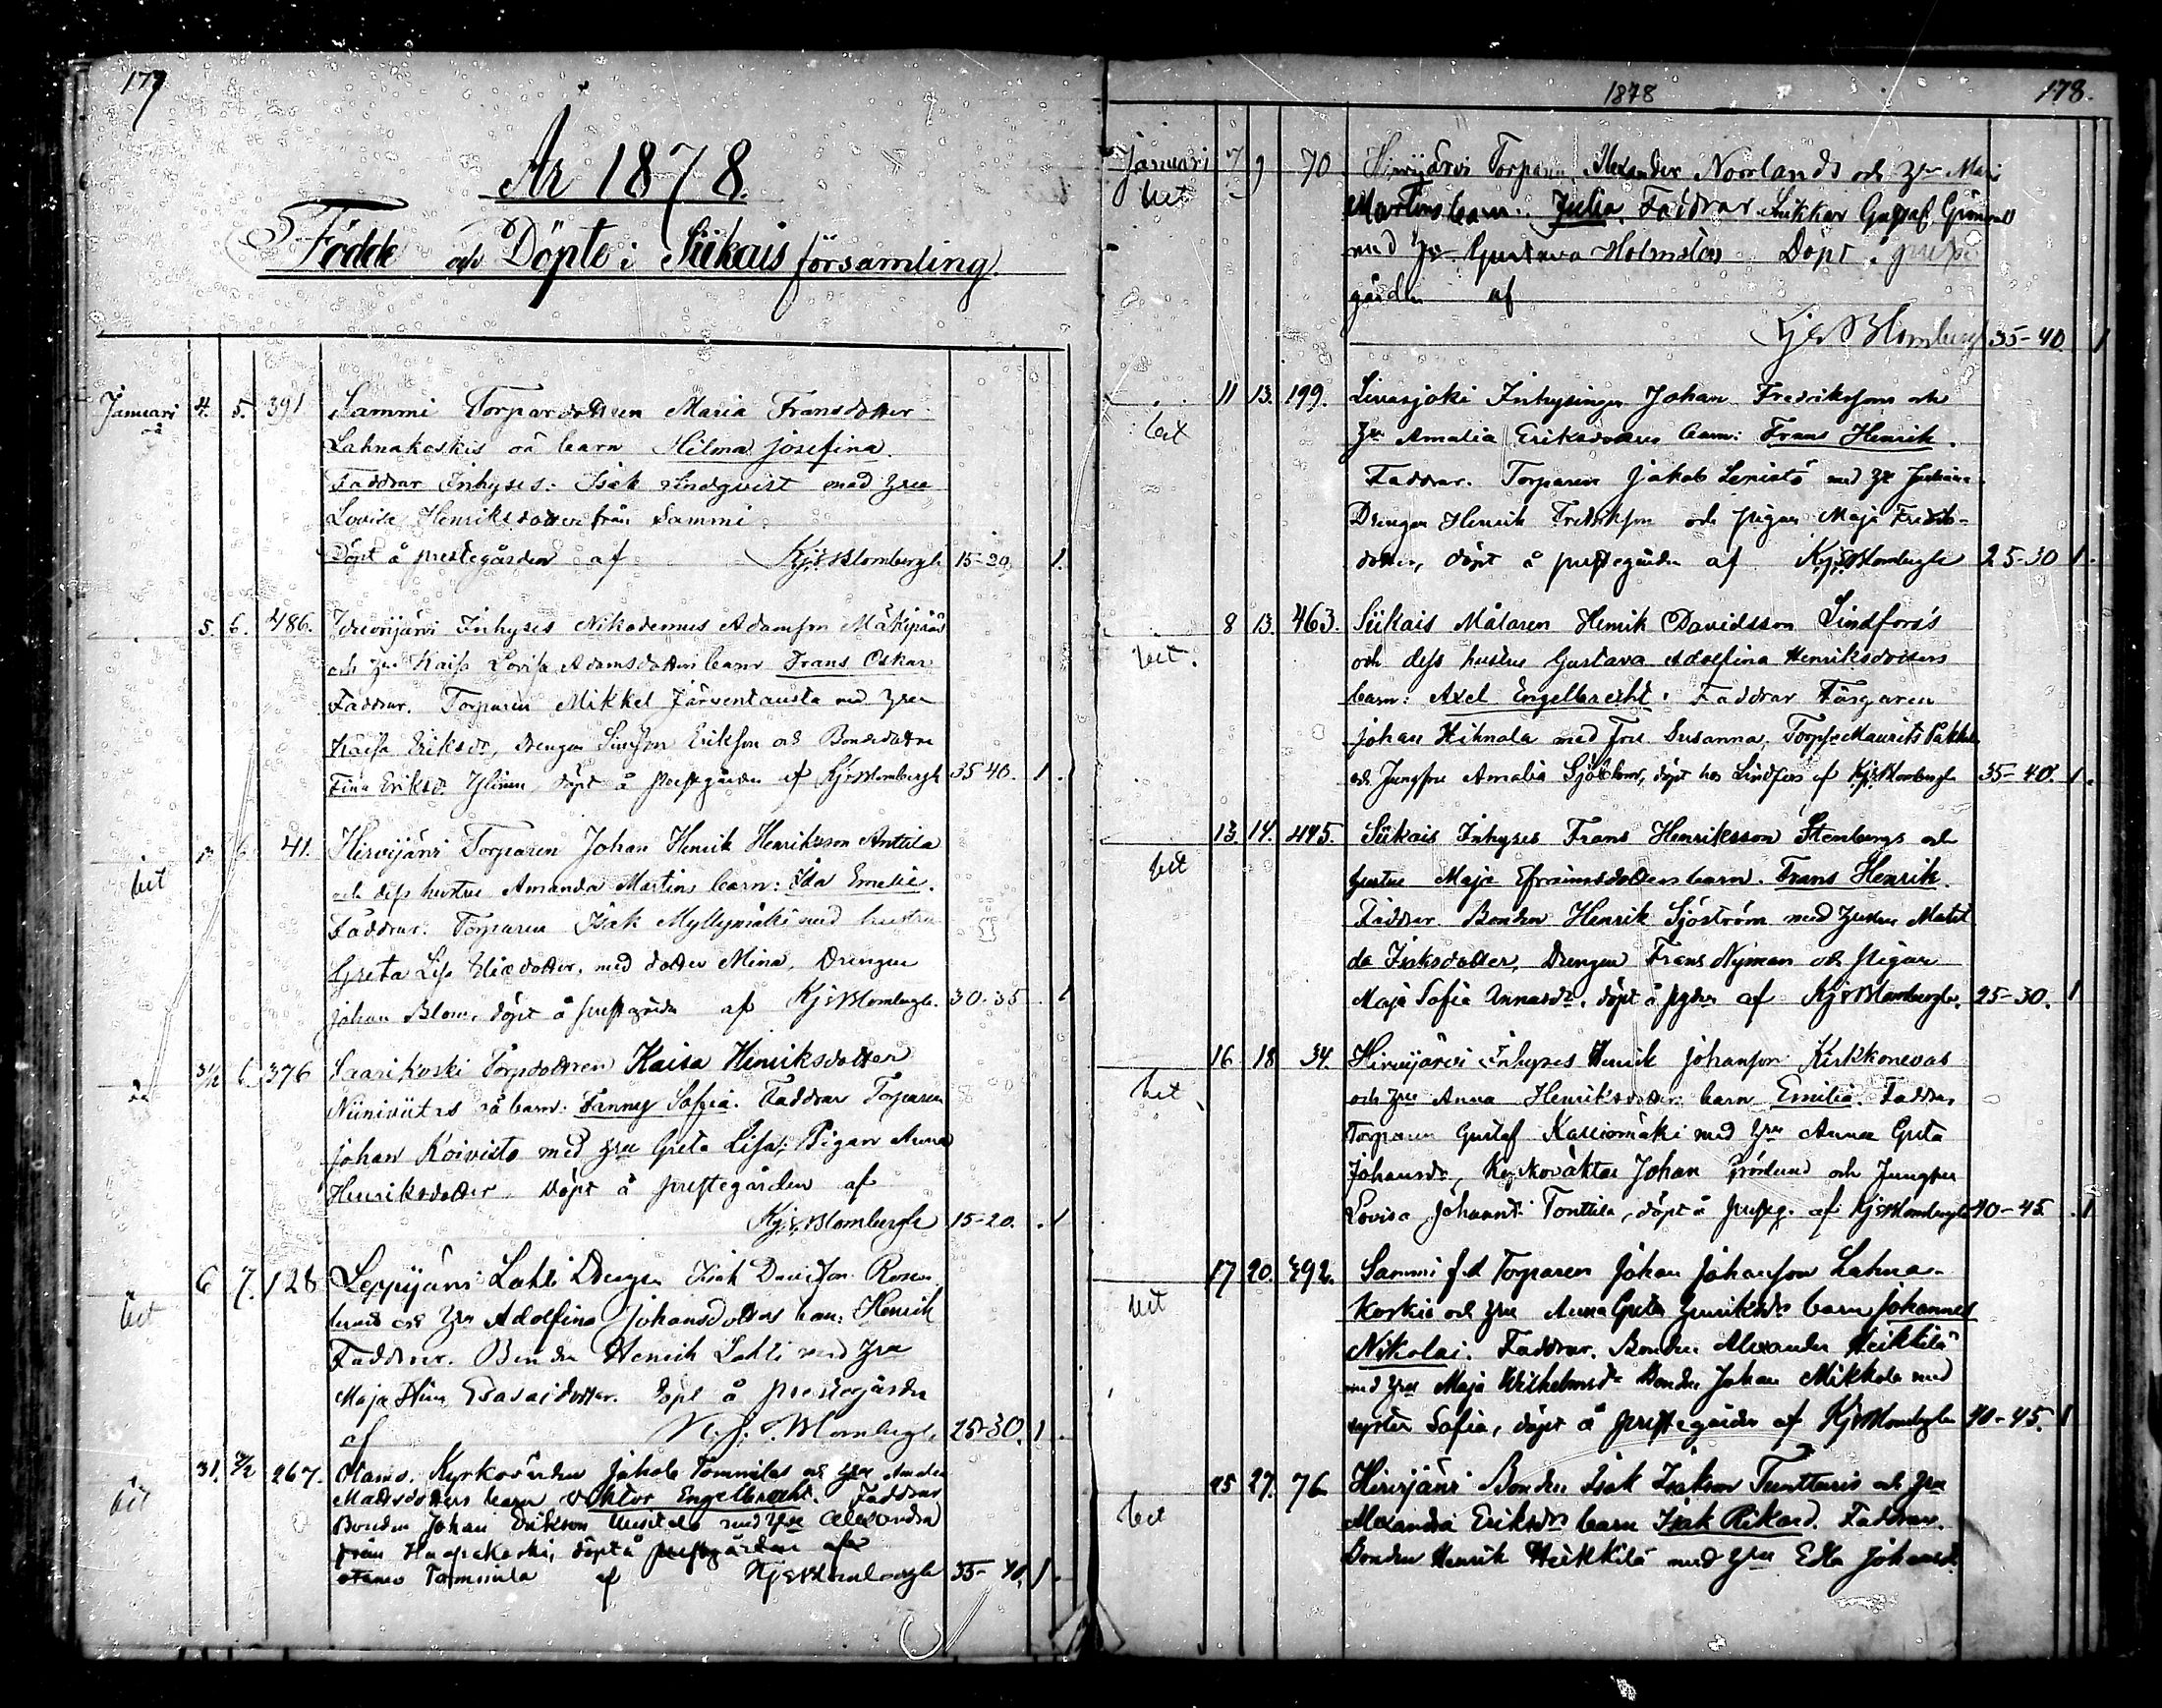 177
År 1878.
Födde och Döpte i Siikais församling.
Januari 4. 5. 391 Sammi Torpardottren Maria Fransdotter
oä Lahnakoskis oä barn Hilma Josefina.
Faddrar Inhyses: Isak Lindqvist med hru
Lovisa Henriksdotter från Sammi
Döpt å prestegården af Kj: E Blombergh 15-20 1.
5. 6. 486. Inhyses Nikodemus Adamsson Mäkipääs
och hru Kaisa Lovisa Adamsdotters barn Frans Oskar
Faddrar. Torparen Mikkel Järventausta med hru
Kaisa Eriksdr, drengen Simson Eriksson och Bondedottren
Fina Eriksdr döpt å prestgården af Kj: E Blombergh 35-40. 1.
6 41. Hirvijärvi Torparen Johan Henrik Henriksson Anttila
bet och dess hustru Amanda Martins barn: Ida Emelie.
Faddrar: Torparen Isak Myllymäki med hustru
Greta Lisa Eliædotter, med dotter Mina, Drengen
Johan Blom, döpt å prestgården af Kj E Blombergh. 30-35 1
31/12 6 376 Saarikoski Torpdottren Kaisa Henriksdotter
oä Niinivirtas oä barn: Fanny Sofia. Faddrar Torparen
Johan Koivisto med hru Greta Lisa; Pigan Anna
Henriksdotter. Döpt å prestegården af
Kj: E Blombergh 15-20. 1
6 7. 128 Leppijärvi Lahti Drengen Isak Davidson Rosen
bet lunds och hru Adolfina Johansdotters barn: Henrik
Faddrar. Bonden Henrik Lahti med hru
Maja Stina Esaiædotter. Döpt å prestegården
af Blombergh. 25-30. 1.
31. 267. Otamo. Kyrkovärden Jakob Tommilas och hru Amalia
bet Mattsdotters barn Viktor Engelbrecht. Faddrar
Bonden Johan Erikson med hru Alexandra
från Haapakoski, döpt å prestgården af
Otamo Tommila af Kj E Blombergh 35-40. 1.
1878
178.
Januari 7 9 70 Hirvijärvi Torparen Alexander Norrlands och hru Mari
bet Martins barn. Julia. Faddrar Gustaf Grönroos
med hru Gustava Holmsten Döpt å preste
gården af
Kj E Blombergh 35-40 1
11 13. 199. Leväsjoki Inhysingen Johan Fredrikssons och
bet hru Amalia Eriksdotters barn: Frans Henrik.
Faddrar. Torparen Jakob Lepistö med hr Justiina
Drengen Henrik Fredriksson och pigan Maja Fredriks-
dotter, döpt å prestegården af Kj: E Blombergh 25-30 1.
8 13. 463. Siikais Målaren Henrik Davidsson Lindfors's
bet. och dess hustru Gustava Adolfina Henriksdotters
barn: Axel Engelbrecht. Faddrar Färgaren
Johan Hihnala med fru Susanna. Maurits
och Jungfru Amalia Sjöblom, döpt hos Lindfors af Kj E Blombergh 35-40. 1.
13. 14. 445. Siikais Inhyses Frans Henriksson Stenbergs och
bet hustru Maja Efraimsdotters barn. Frans Henrik.
Faddrar. Bonden Henrik Sjöström med hustru Matil
da Isaksdotter, Drengen Frans Nyman och pigan
Maja Sofia Annasdr. döpt å pgden af Kj E Blombergh. 25-30. 1
16 18 34. Hirvijärvi Inhyses Henrik Johansson Kirkkonevas
bet och hru Anna Henriksdotters barn Emilia. Faddrar
Torparen Gustaf Kalliomäki med hru Anna Greta
Johansdr, Kyrkoväktar Johan Grönlund och Jungfru
Lovisa Johansdr Tonttila, döpt å presteg. af Kj E Blombergh 40-45. 1
17 20. 392. Sammi f.d Torparen Johan Johansson Lahna-
bet koskis och hru Anna Greta Henriksdrs barn Johannes
Nikolai. Faddrar. Bonden Alexander Heikkilä
med hru Maja Wilhelmsdr Bonden Johan Mikkola med
syster Sofia, döpt å prestegården af Kj E Blombergh 40-45. 1
25 27. 76 Hirvijärvi Bonden Isak Isaksson Tuntturis och hru
bet Alexandra Eriksdrs barn Isak Rikard. Faddrar.
Bonden Henrik Heikkilä med hru Edla Johansd.